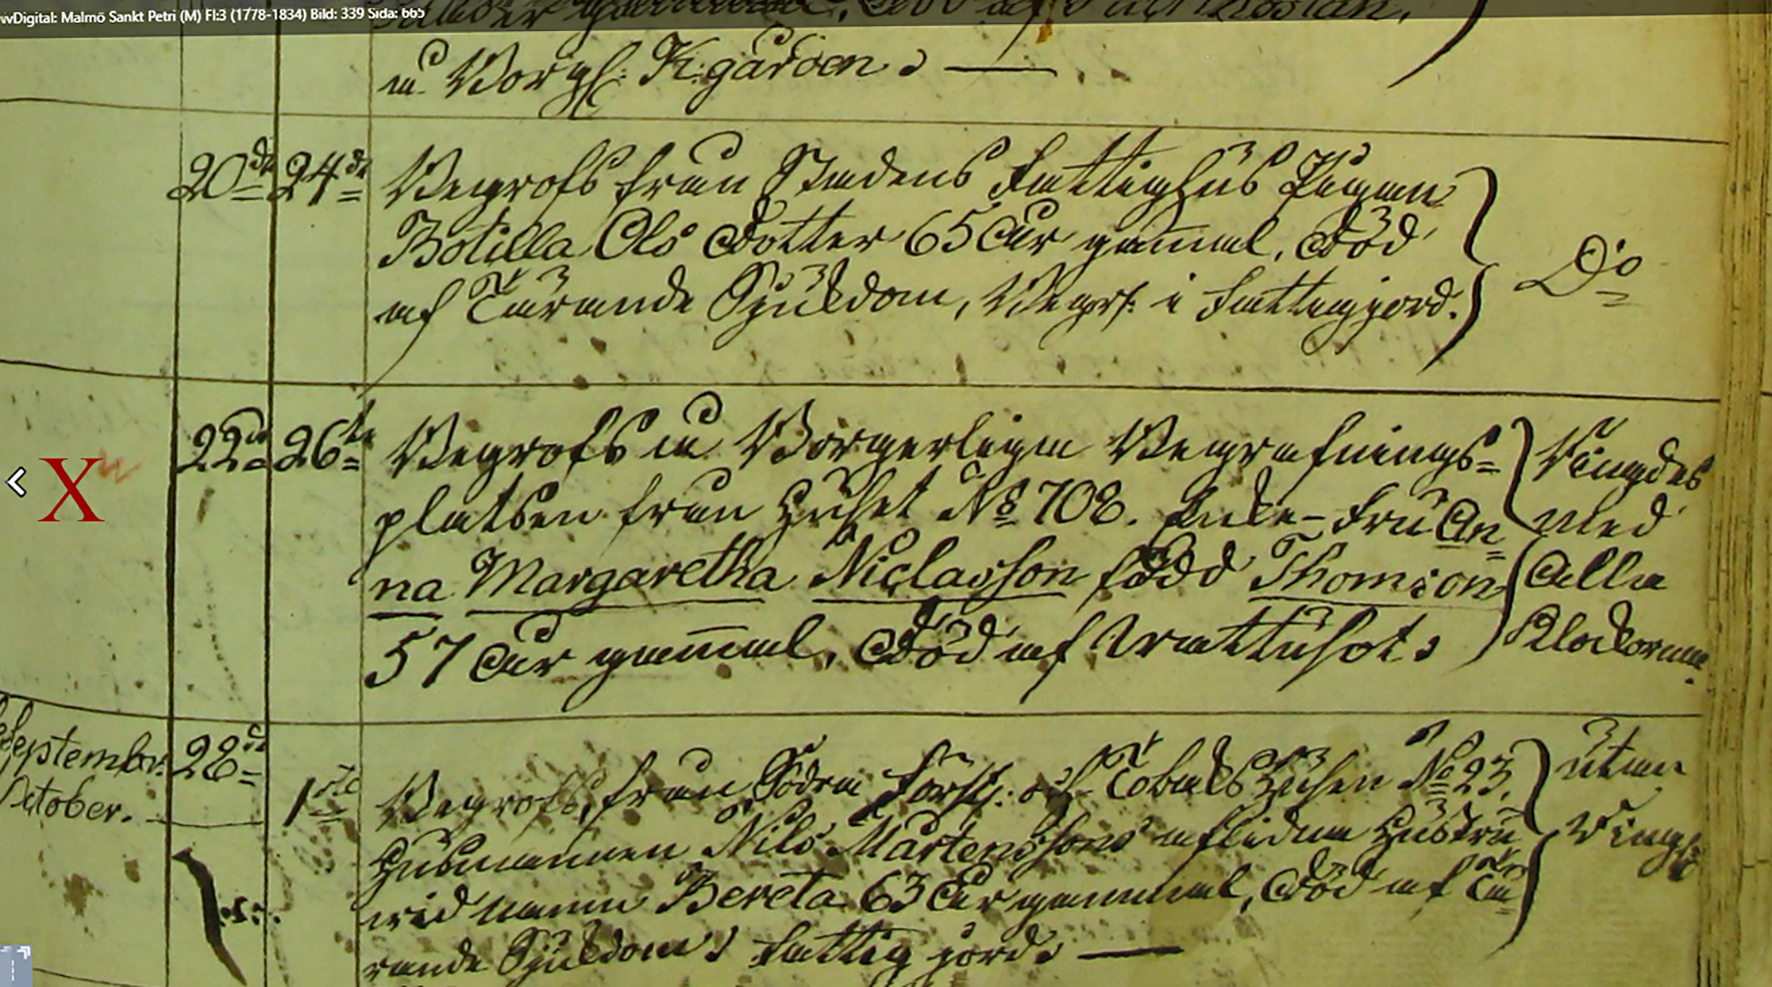 wDigital: Malmö Sankt Petri (M) FI:3 (1778-1834) Bild: 339 Sida: 665
å Borgl: K:gården.
20de 24de Begrofs från Stadens Fattighus Pigan
Botilla Ols dotter 65 år gammal, död
af Tärande Sjukdom, Begrf: i Fattigjord.
Do
X 22de 26te Begrofs å Borgerliga Begrafnings=
platsen från Huset No 708. Enke-Fru An=
na Margaretha Niclasson född Thomson
57 år gammal, död af Wattusot.
Ringdes
med
alla
Klockorna.
September 28de
October. 1ste Begrofs, från Södra Förs: och Tobaks Husen No 23,
Husmannen Nils Mårtenssons aflidna Hustru
wid namn Bereta 63 år gammal, död af Tä=
rande Sjukdom. Fattig jord.
utan
Ringn: